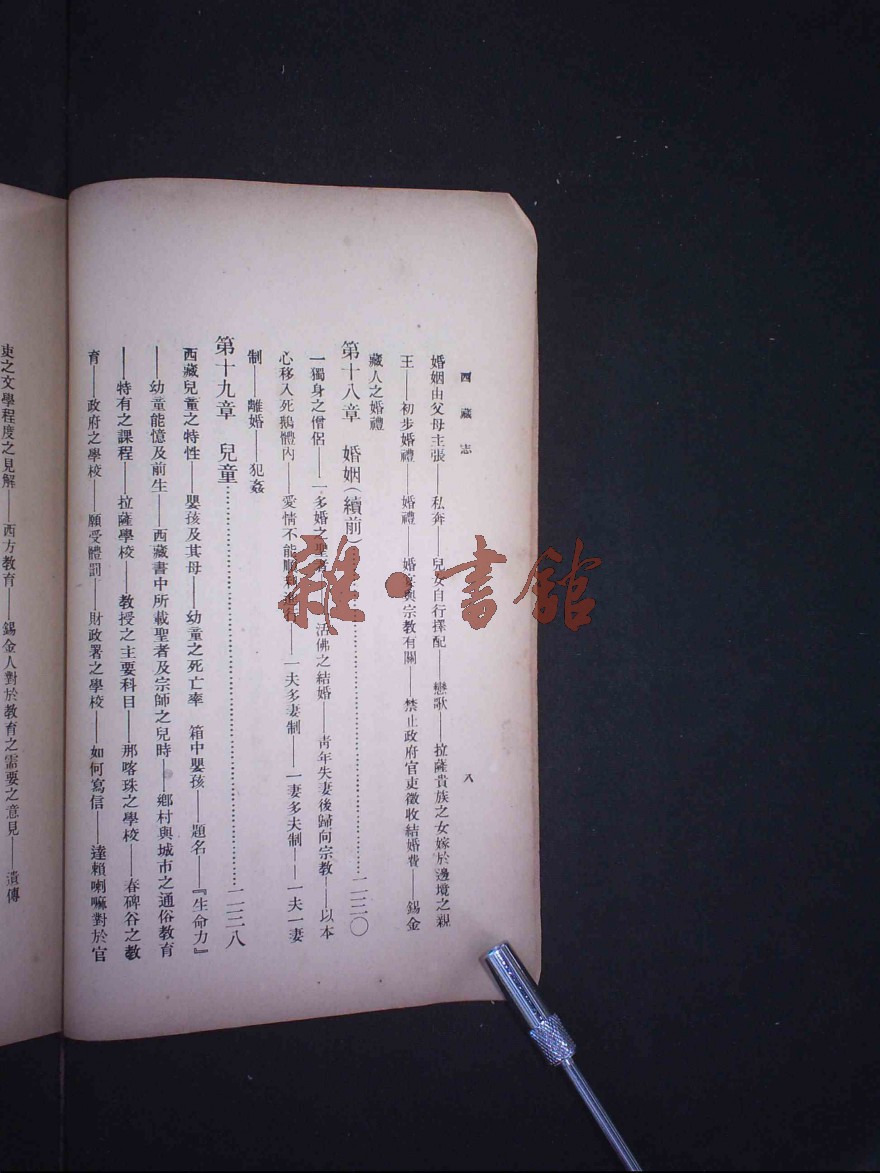 西藏志
八
婚姻由父母主張——私奔——兒女自行擇配——戀歌——拉薩貴族之女嫁於邊境之親
王——初步婚禮——婚禮——婚宴與宗教有關——禁止政府官吏徵收結婚費——錫金
藏人之婚禮
第十八章 婚姻(續前)……二二〇
一獨身之僧侶——一多婚之聖者——活佛之結婚——靑年失妻後歸向宗教——以本
心移入死鵝體內——愛情不能順利進行——一夫多妻制——一妻多夫制——一夫一妻
制——離婚——犯姦
第十九章 兒童……二三八
西藏兒童之特性——嬰孩及其母——幼童之死亡率 箱中嬰孩——題名——『生命力』
——幼童能憶及前生——西藏書中所載聖者及宗師之兒時——鄉村與城市之通俗教育
——特有之課程——拉薩學校——教授之主要科目——那喀珠之學校——春碑谷之教
育——政府之學校——願受體罰——財政署之學校——如何寫信——達賴喇嘛對於官
吏之文學程度之見解——西方教育——錫金人對於教育之需要之意見——遺傳
雜·書館